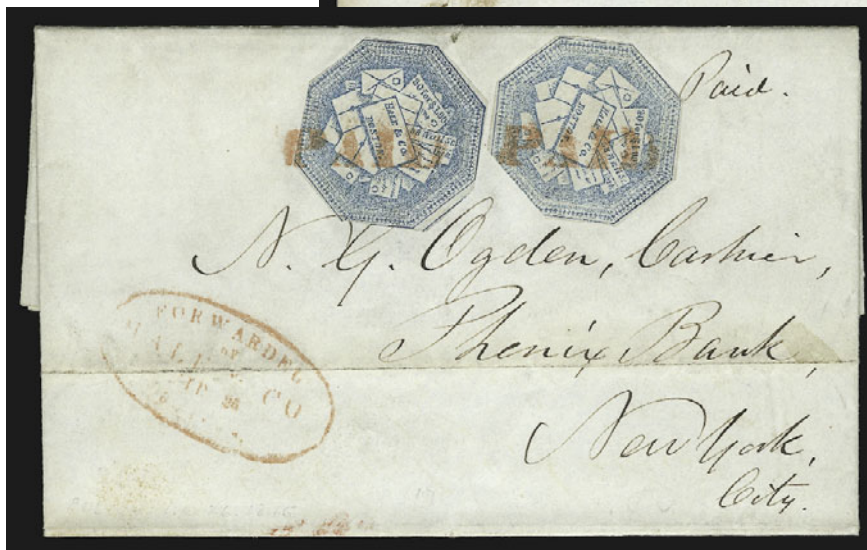 Paid.
HALE & Co.
BOSTON
PAID
HALE & Co.
BOSTON
PAID
N. G. Ogden, Cashier,
Phenix Bank,
New York,
City.
FORWARDED
BY
HALE & CO